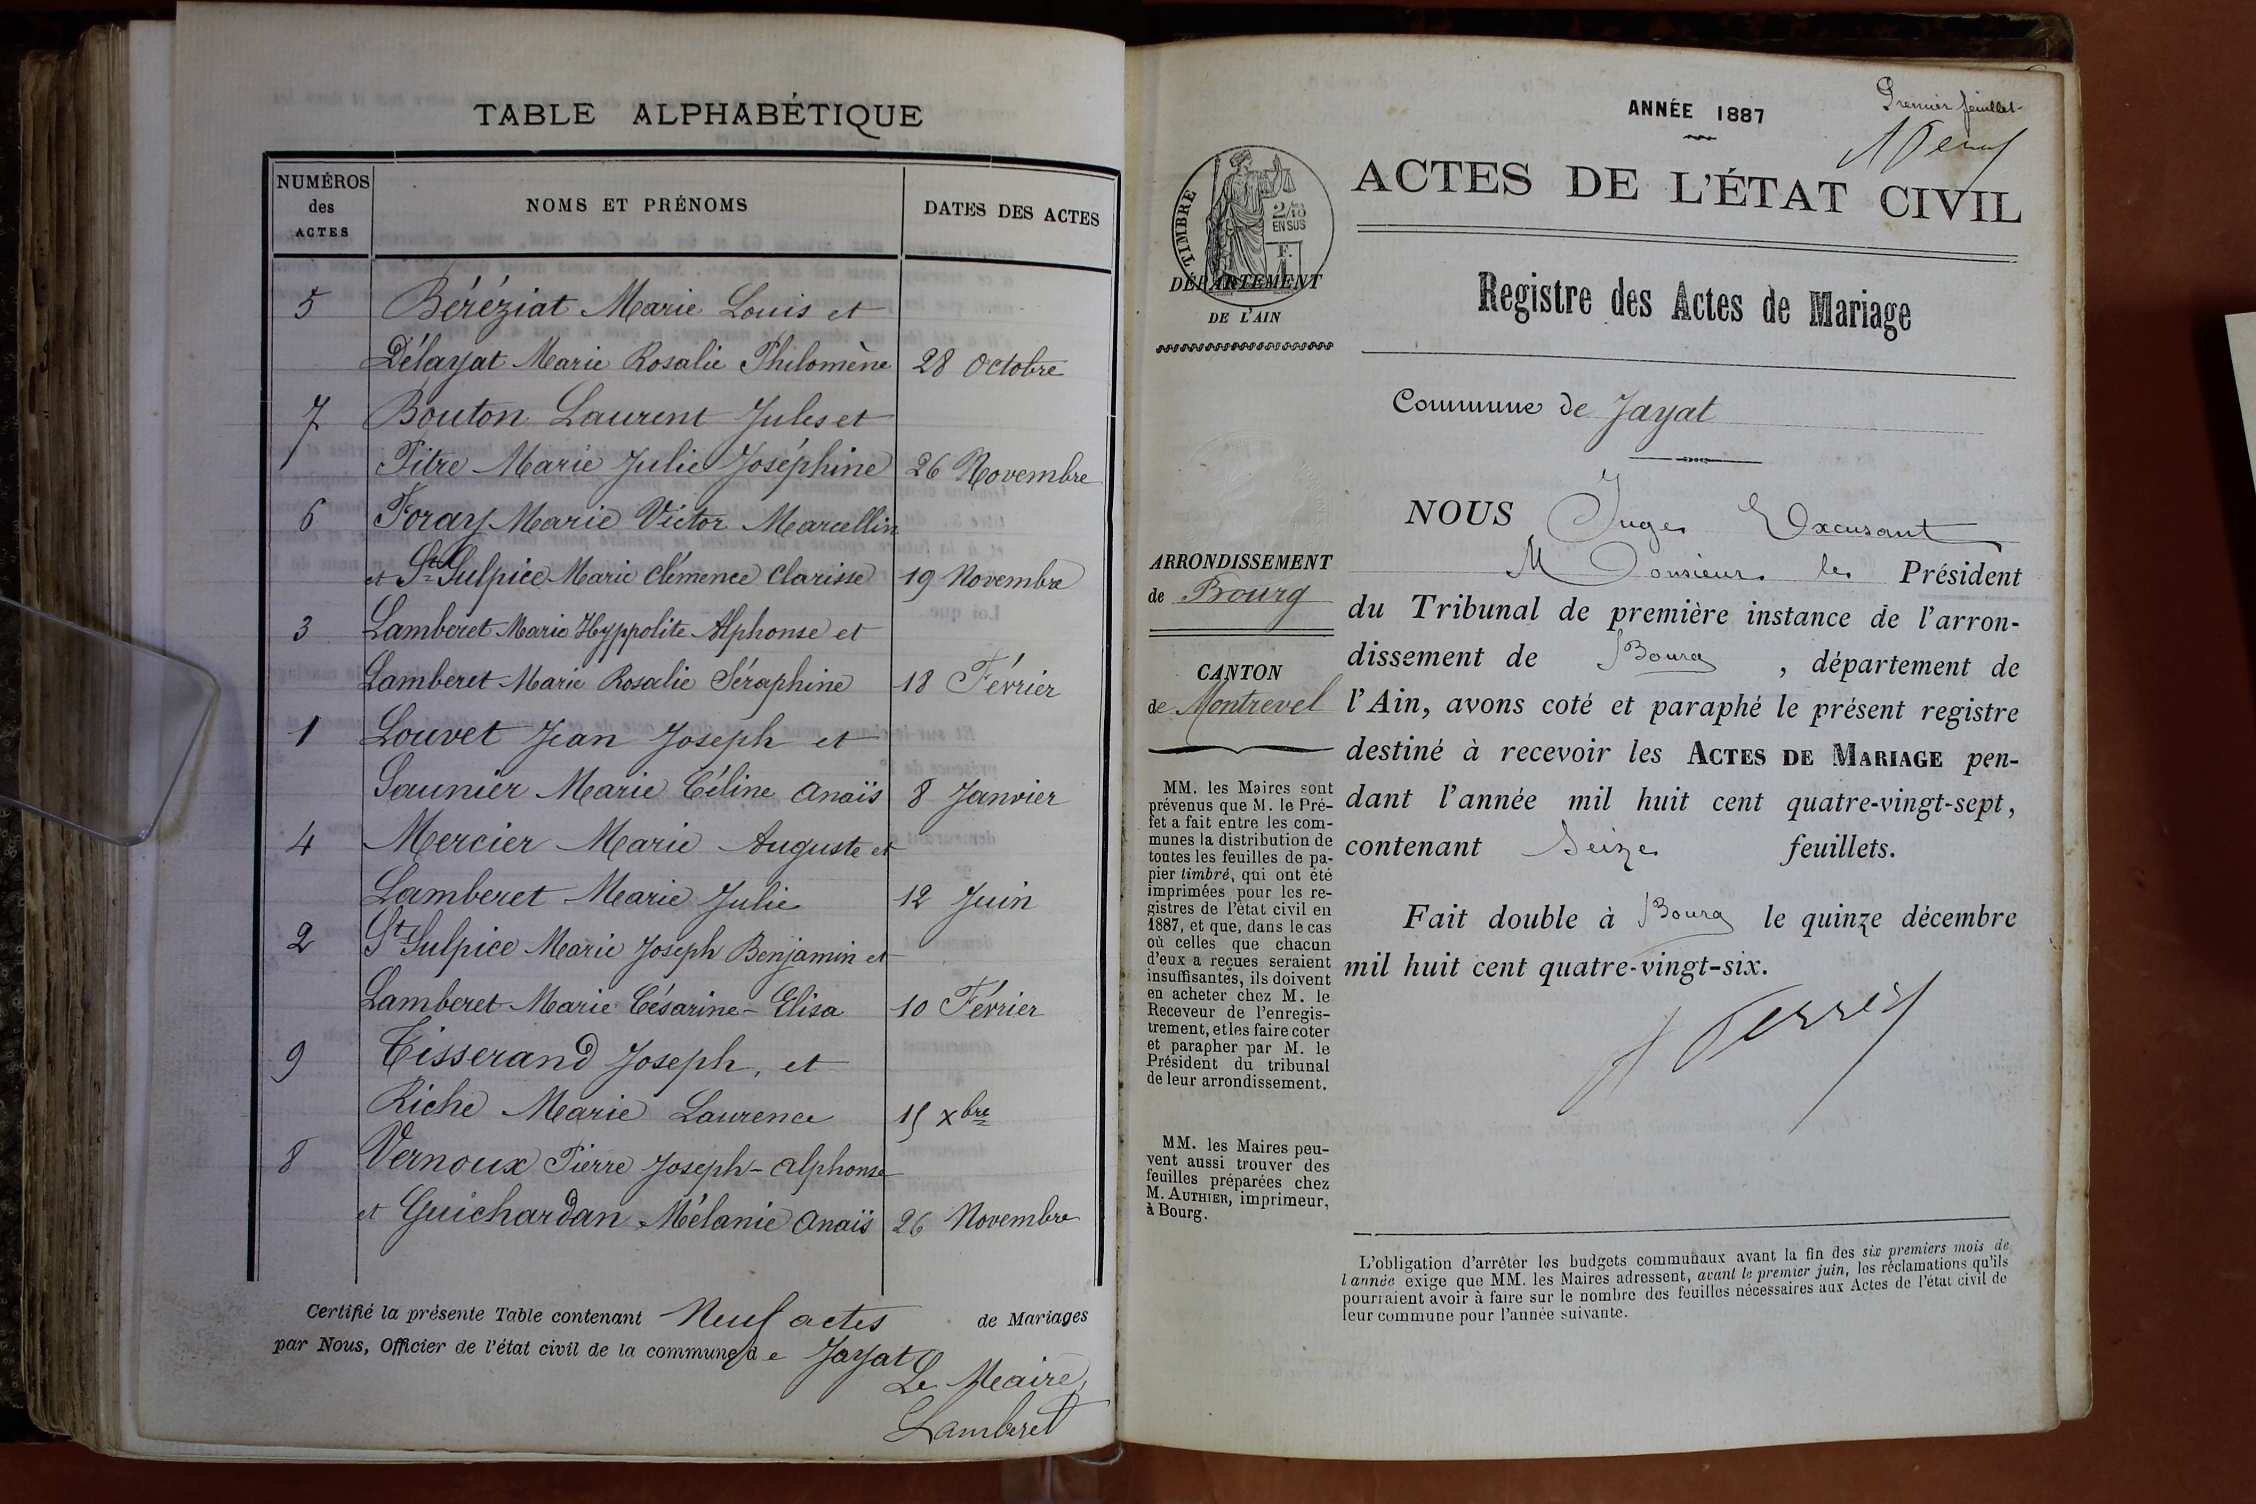 TABLE ALPHABÉTIQUE
NUMÉROS
des
ACTES
NOMS ET PRÉNOMS
DATES DES ACTES
5 Béréziat Marie Louis et
Délayat Marie Rosalie Philomène 28 Octobre
7 Bouton Laurent Jules et
Pitre Marie Julie Joséphine 26 Novembre
6 Foray Marie Victor Marcellin
et St Sulpice Marie Clémence Clarisse 19 Novembre
3 Lamberet Marie Hyppolite Alphonse et
Lamberet Marie Rosalie Séraphine 18 Février
1 Louvet Jean Joseph et
Saunier Marie Céline Anaïs 8 Janvier
4 Mercier Marie Auguste et
Lamberet Marie Julie 12 Juin
2 St Sulpice Marie Joseph Benjamin et
Lamberet Marie Césarine-Elisa 10 Février
9 Tisserand Joseph, et
Riche Marie Laurence 15 xbre
8 Vernoux Pierre Joseph-Alphonse
et Guichardan Mélanie Anaïs 26 Novembre
Certifié la présente Table contenant Neuf actes de Mariages
par Nous, Officier de l'état civil de la commune de Jayat
Le Maire,
Lamberet
Premier feuillet
ANNÉE 1887
ACTES DE L'ÉTAT CIVIL
TIMBRE
2/10
EN SUS
F.
1
DÉPARTEMENT
DE L'AIN
Registre des Actes de Mariage
Commune de Jayat
ARRONDISSEMENT
de Bourg
CANTON
de Montrevel
MM. les Maires sont
prévenus que M. le Pré-
fet a fait entre les com-
munes la distribution de
toutes les feuilles de pa-
pier timbré, qui ont été
imprimées pour les re-
gistres de l'état civil en
1887, et que, dans le cas
où celles que chacun
d'eux a reçues seraient
insuffisantes, ils doivent
en acheter chez M. le
Receveur de l'enregis-
trement, et les faire coter
et parapher par M. le
Président du tribunal
de leur arrondissement.
MM. les Maires peu-
vent aussi trouver des
feuilles préparées chez
M. AUTHIER, imprimeur,
à Bourg.
NOUS Juge Excusant
Monsieur le Président
du Tribunal de première instance de l'arron-
dissement de Bourg, département de
l'Ain, avons coté et paraphé le présent registre
destiné à recevoir les ACTES DE MARIAGE pen-
dant l'année mil huit cent quatre-vingt-sept,
contenant Seize feuillets.
Fait double à Bourg le quinze décembre
mil huit cent quatre-vingt-six.
L'obligation d'arrêter les budgets communaux avant la fin des six premiers mois de
l'année exige que MM. les Maires adressent, avant le premier juin, les réclamations qu'ils
pourraient avoir à faire sur le nombre des feuilles nécessaires aux Actes de l'état civil de
leur commune pour l'année suivante.